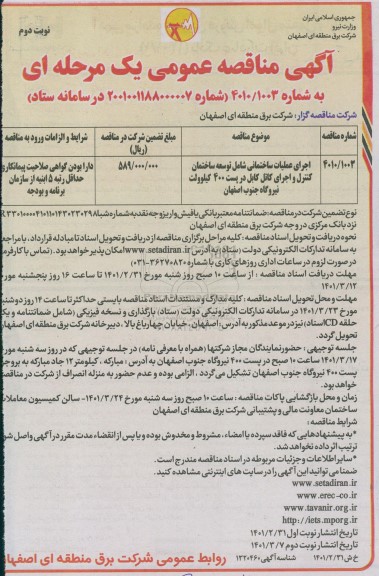 جمهوری اسلامی ایران
وزارت نیرو
شرکت برق منطقه ای اصفهان
نوبت دوم
آگهی مناقصه عمومی یک مرحله ای
به شماره ۴۰۱۰/۱۰۰۳ (شماره ۲۰۰۱۰۰۱۱۸۸۰۰۰۰۰۷ در سامانه ستاد)
شرکت مناقصه گزار: شرکت برق منطقه ای اصفهان
شماره مناقصه
موضوع مناقصه
مبلغ تضمین شرکت در مناقصه (ریال)
شرایط و الزامات ورود به مناقصه
۴۰۱۰/۱۰۰۳
اجرای عملیات ساختمانی شامل توسعه ساختمان
کنترل و اجرای کانال کابل در پست ۴۰۰ کیلوولت
نیروگاه جنوب اصفهان
۵۸۹/۰۰۰/۰۰۰
دارا بودن گواهی صلاحیت پیمانکاری
حداقل رتبه ۵ ابنیه از سازمان
برنامه و بودجه
نوع تضمین شرکت در مناقصه: ضمانتنامه معتبر بانکی یا فیش واریز وجه نقد به شماره شبا
نزد بانک مرکزی در وجه شرکت برق منطقه ای اصفهان
نحوه دریافت و تحویل اسناد مناقصه: کلیه مراحل برگزاری مناقصه از دریافت و تحویل اسناد تا مبادله قرارداد، با مراجعه
به سامانه تدارکات الکترونیکی دولت (ستاد) به آدرس www.setadiran.ir امکان پذیر خواهد بود.
در صورت لزوم در ساعات اداری روزهای کاری با شماره ۳۶۲۷۰۸۲۰-۰۳۱)
مهلت دریافت اسناد مناقصه: از ساعت ۱۰ صبح روز شنبه مورخ ۱۴۰۱/۲/۳۱ تا ساعت ۱۶ روز پنجشنبه مورخ
۱۴۰۱/۳/۱۲
مهلت و محل تحویل اسناد مناقصه: کلیه مدارک و مستندات اسناد مناقصه بایستی حداکثر تا ساعت ۱۴ روز دوشنبه
مورخ ۱۴۰۱/۳/۲۳ در سامانه تدارکات الکترونیکی دولت (ستاد) بارگذاری و نسخه فیزیکی (شامل ضمانتنامه و یک
حلقه CD اسناد) نیز در موعد مذکور به آدرس: اصفهان، خیابان چهارباغ بالا، دبیرخانه شرکت برق منطقه ای اصفهان
تحویل گردد.
جلسه توجیهی: حضور نمایندگان مجاز شرکتها (همراه با معرفی نامه) در جلسه توجیهی که در روز سه شنبه مورخ
۱۴۰۱/۳/۱۷ ساعت ۱۰ صبح در پست ۴۰۰ نیروگاه جنوب اصفهان به آدرس: مبارکه، کیلومتر ۱۲ جاده مبارکه به بروجن
پست ۴۰۰ نیروگاه جنوب اصفهان تشکیل می گردد، الزامی بوده و عدم حضور به منزله انصراف از شرکت در مناقصه
خواهد بود.
زمان و محل بازگشایی پاکات مناقصه: ساعت ۱۰ صبح روز سه شنبه مورخ ۱۴۰۱/۳/۲۴- سالن کمیسیون معاملات
ساختمان معاونت مالی و پشتیبانی شرکت برق منطقه ای اصفهان
شرایط مناقصه:
*به پیشنهادهایی که فاقد سپرده یا امضاء، مشروط و مخدوش بوده و یا پس از انقضاء مدت مقرر در آگهی واصل شود
ترتیب اثر داده نخواهد شد.
*سایر اطلاعات و جزئیات مربوطه در اسناد مناقصه مندرج است.
ضمنا می توانید این آگهی را در سایت های اینترنتی مشاهده کنید.
www.setadiran.ir
www.erec-co.ir
www.tavanir.org.ir
http://iets.mporg.ir
تاریخ انتشار نوبت اول ۱۴۰۱/۲/۳۱
تاریخ انتشار نوبت دوم ۱۴۰۱/۳/۷
خ ش ۱۴۰۱/۲/۳۱ شناسه آگهی ۱۳۲۰۴۶۰
روابط عمومی شرکت برق منطقه ای اصفهان